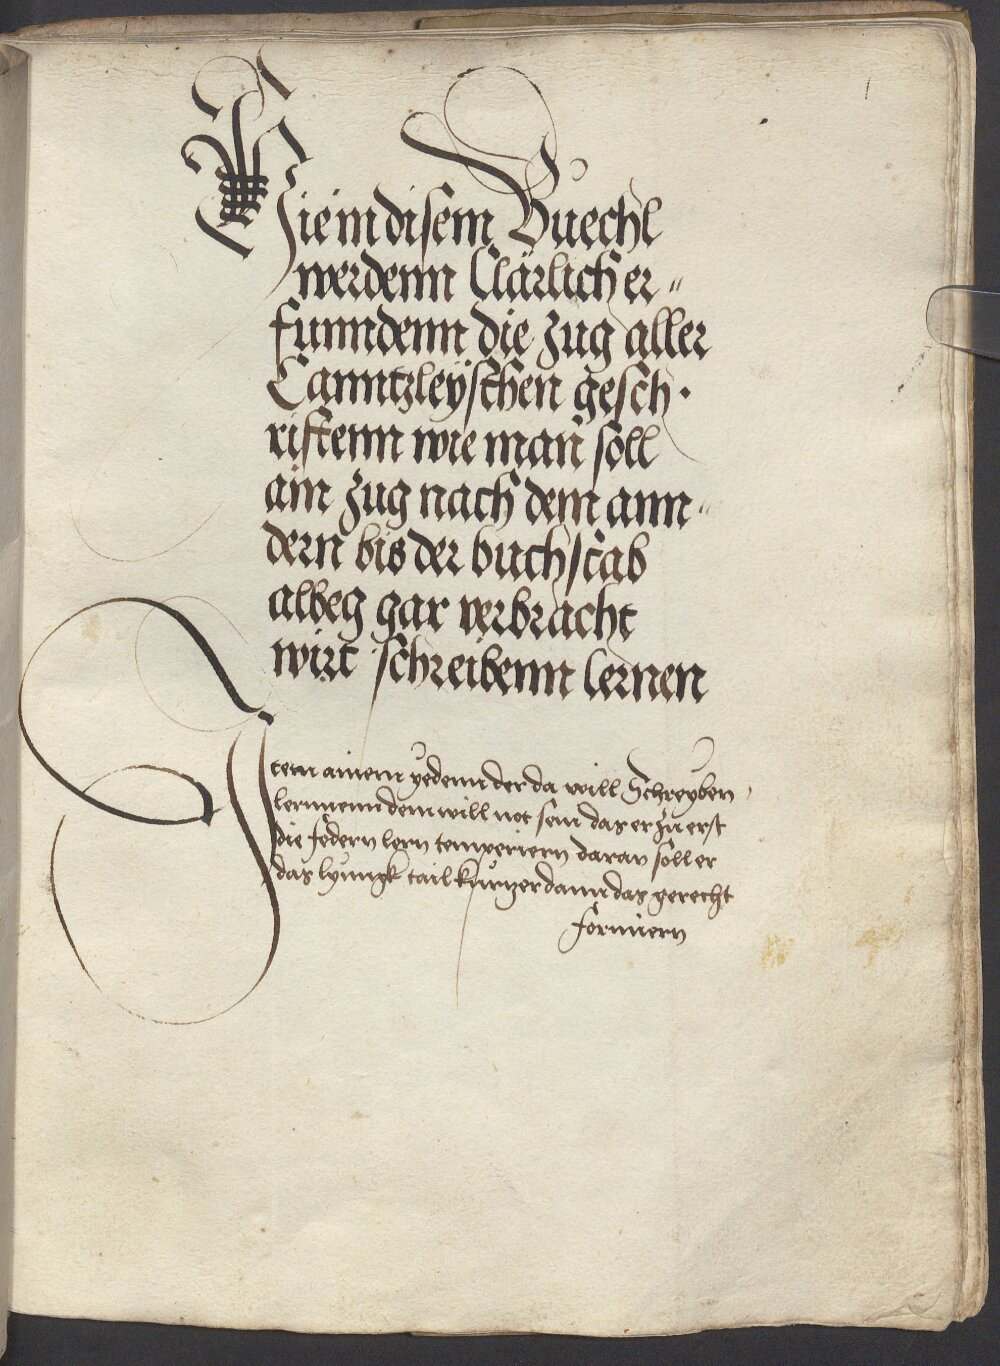 1
Hie in disem Buechl
werdenn Clärlich er=
funndenn die zug aller
Canntzleyschen gesch·
rifftenn wie man soll
ain zug nach dem ann=
dern bis der buchstab
albeg gar verbracht
wirt schreibenn lernen
Item ainem yedenn der da will Schreyben
lernnenn dem will not sein das er zu erst
die federn lern temperiern daran soll er
das lynngk tail kurtzer dann das gerecht
formiern